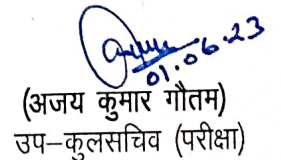 01.06.23
(अजय कुमार गौतम)
उप–कुलसचिव (परीक्षा)